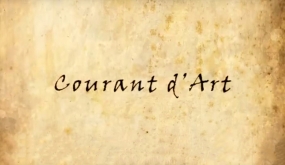 Courant d'Art